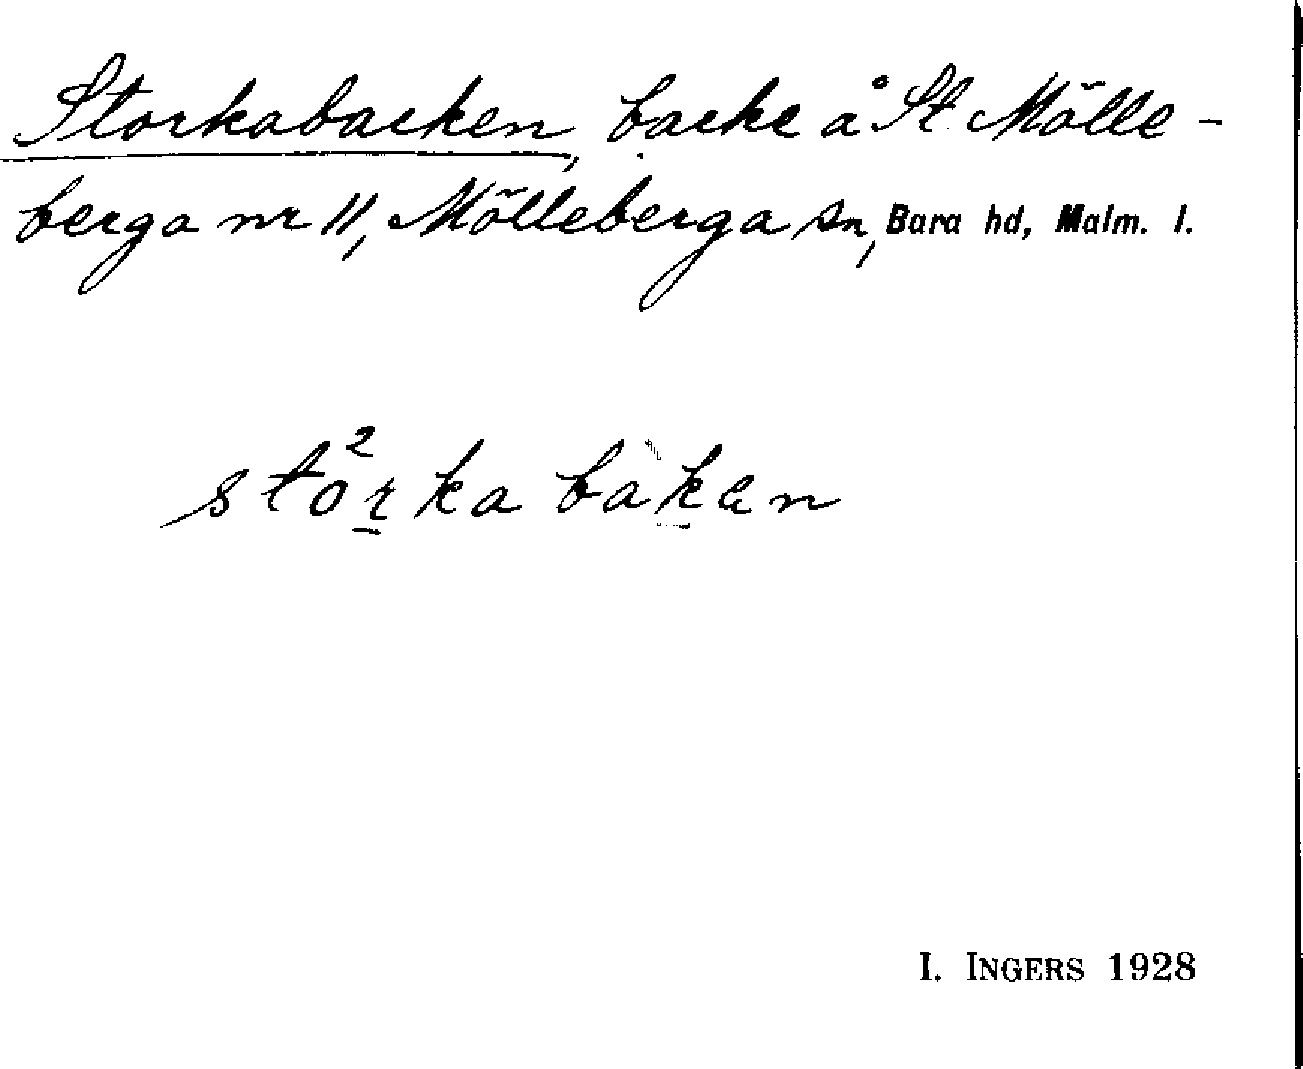 Storkabacken, backe å St. Mölle-
berga nr 11, Mölleberga sn, Bara hd, Malm. l.
sto²rka bàkan
I. INGERS 1928